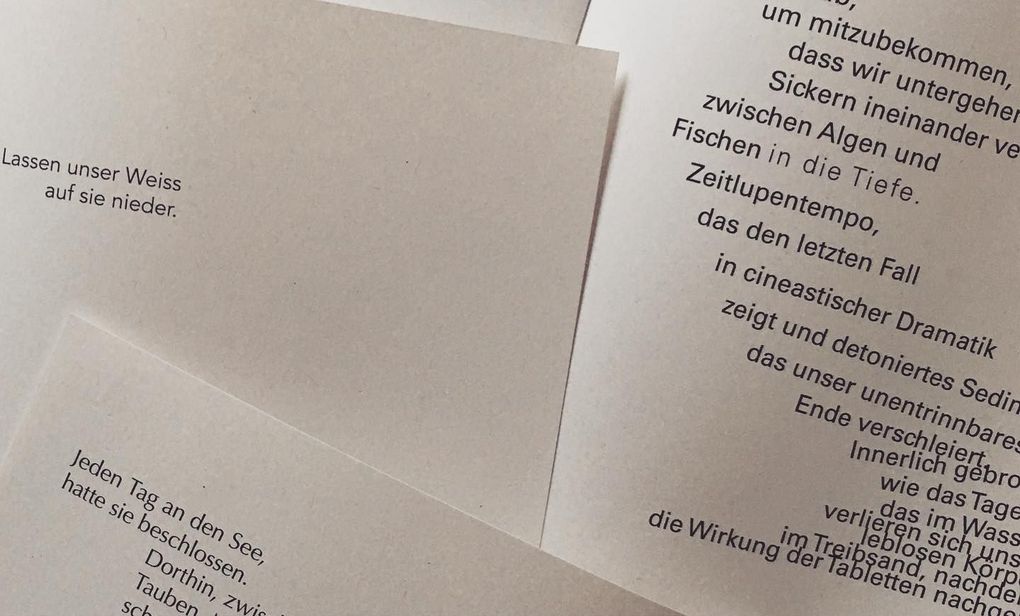 Lassen unser Weiss
auf sie nieder.
Jeden Tag an den See,
hatte sie beschlossen.
Dorthin,
Tauben,
um mitzubekommen,
dass wir untergehen
Sickern ineinander
zwischen Algen und
Fischen in die Tiefe.
Zeitlupentempo,
das den letzten Fall
in cineastischer Dramatik
zeigt und detoniertes
das unser unentrinnbares
Ende verschleiert.
Innerlich
wie das
das im
verlieren sich
leblosen
im Treibsand,
die Wirkung der Tabletten